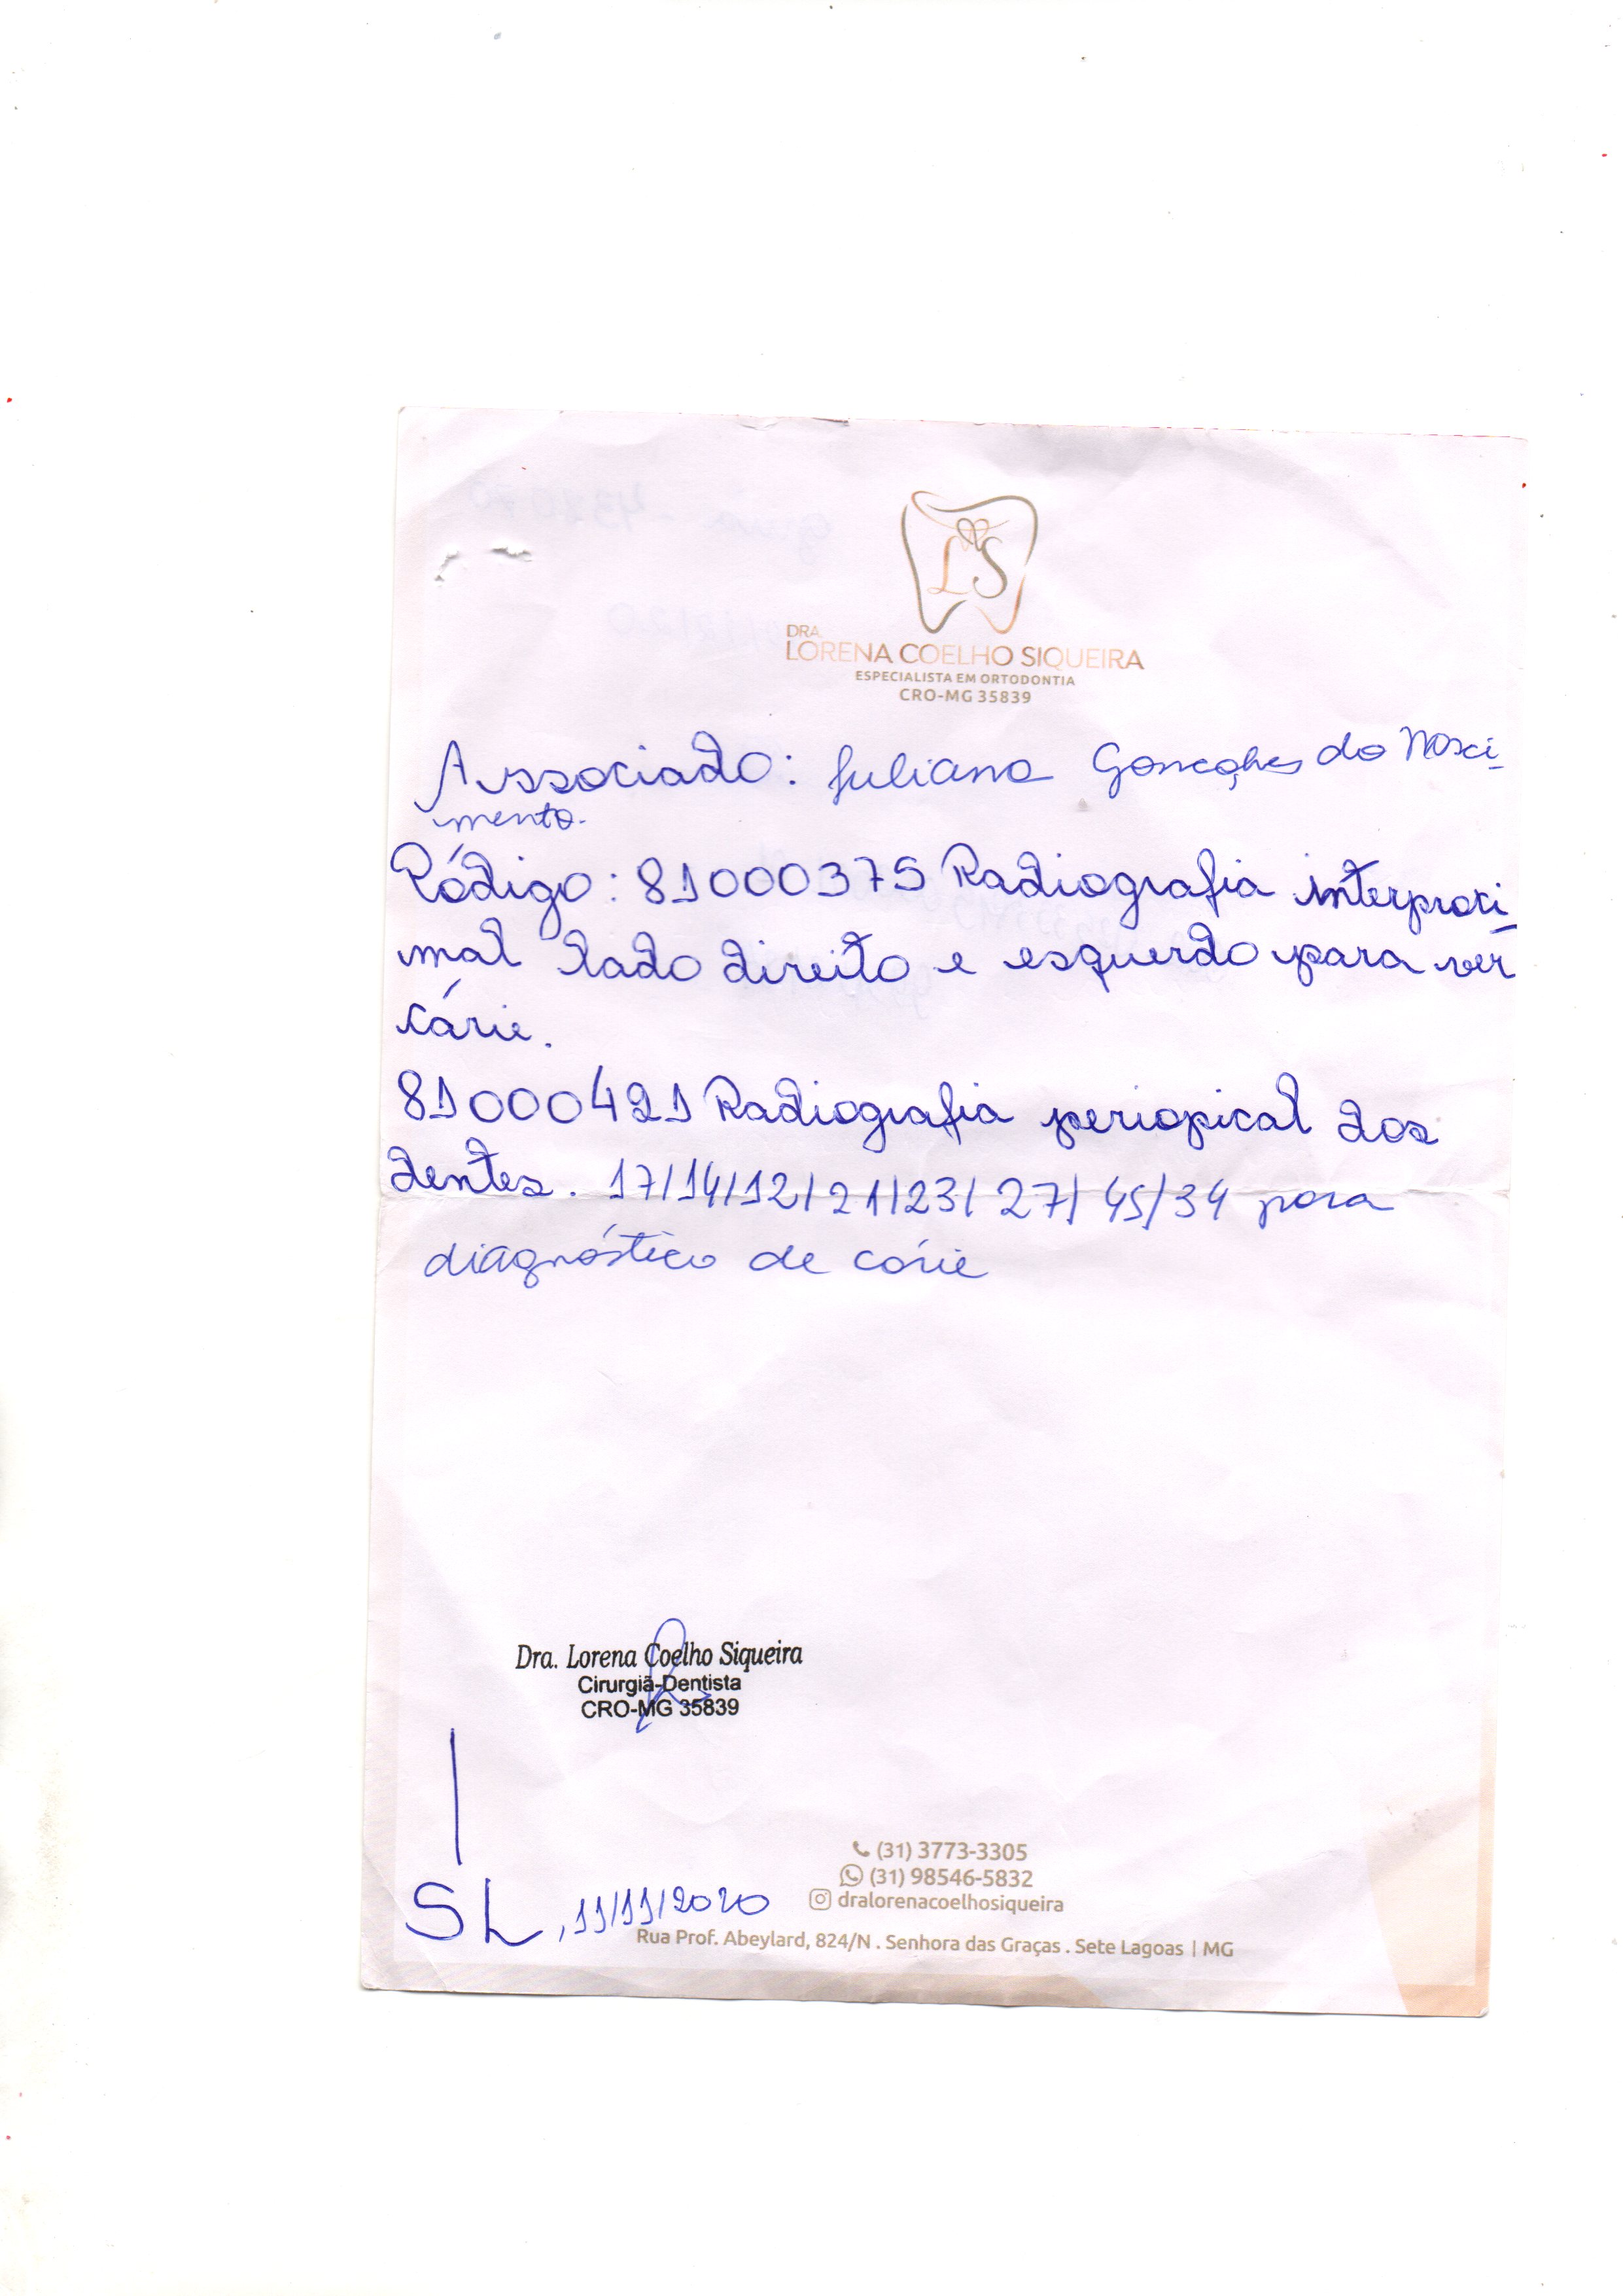 LS
DRA.
LORENA COELHO SIQUEIRA
ESPECIALISTA EM ORTODONTIA
CRO-MG 35839
Associado: Juliana Gonçalves do Nasci-
mento.
Código: 81000375 Radiografia interproxi-
mal lado direito e esquerdo para ver
cárie.
81000421 Radiografia periapical dos
dentes. 17/14/12/21/23/27/45/34 para
diagnóstico de cárie
Dra. Lorena Coelho Siqueira
Cirurgiã-Dentista
CRO-MG 35839
(31) 3773-3305
(31) 98546-5832
dralorenacoelhosiqueira
SL, 11/11/2020
Rua Prof. Abeylard, 824/N . Senhora das Graças . Sete Lagoas | MG